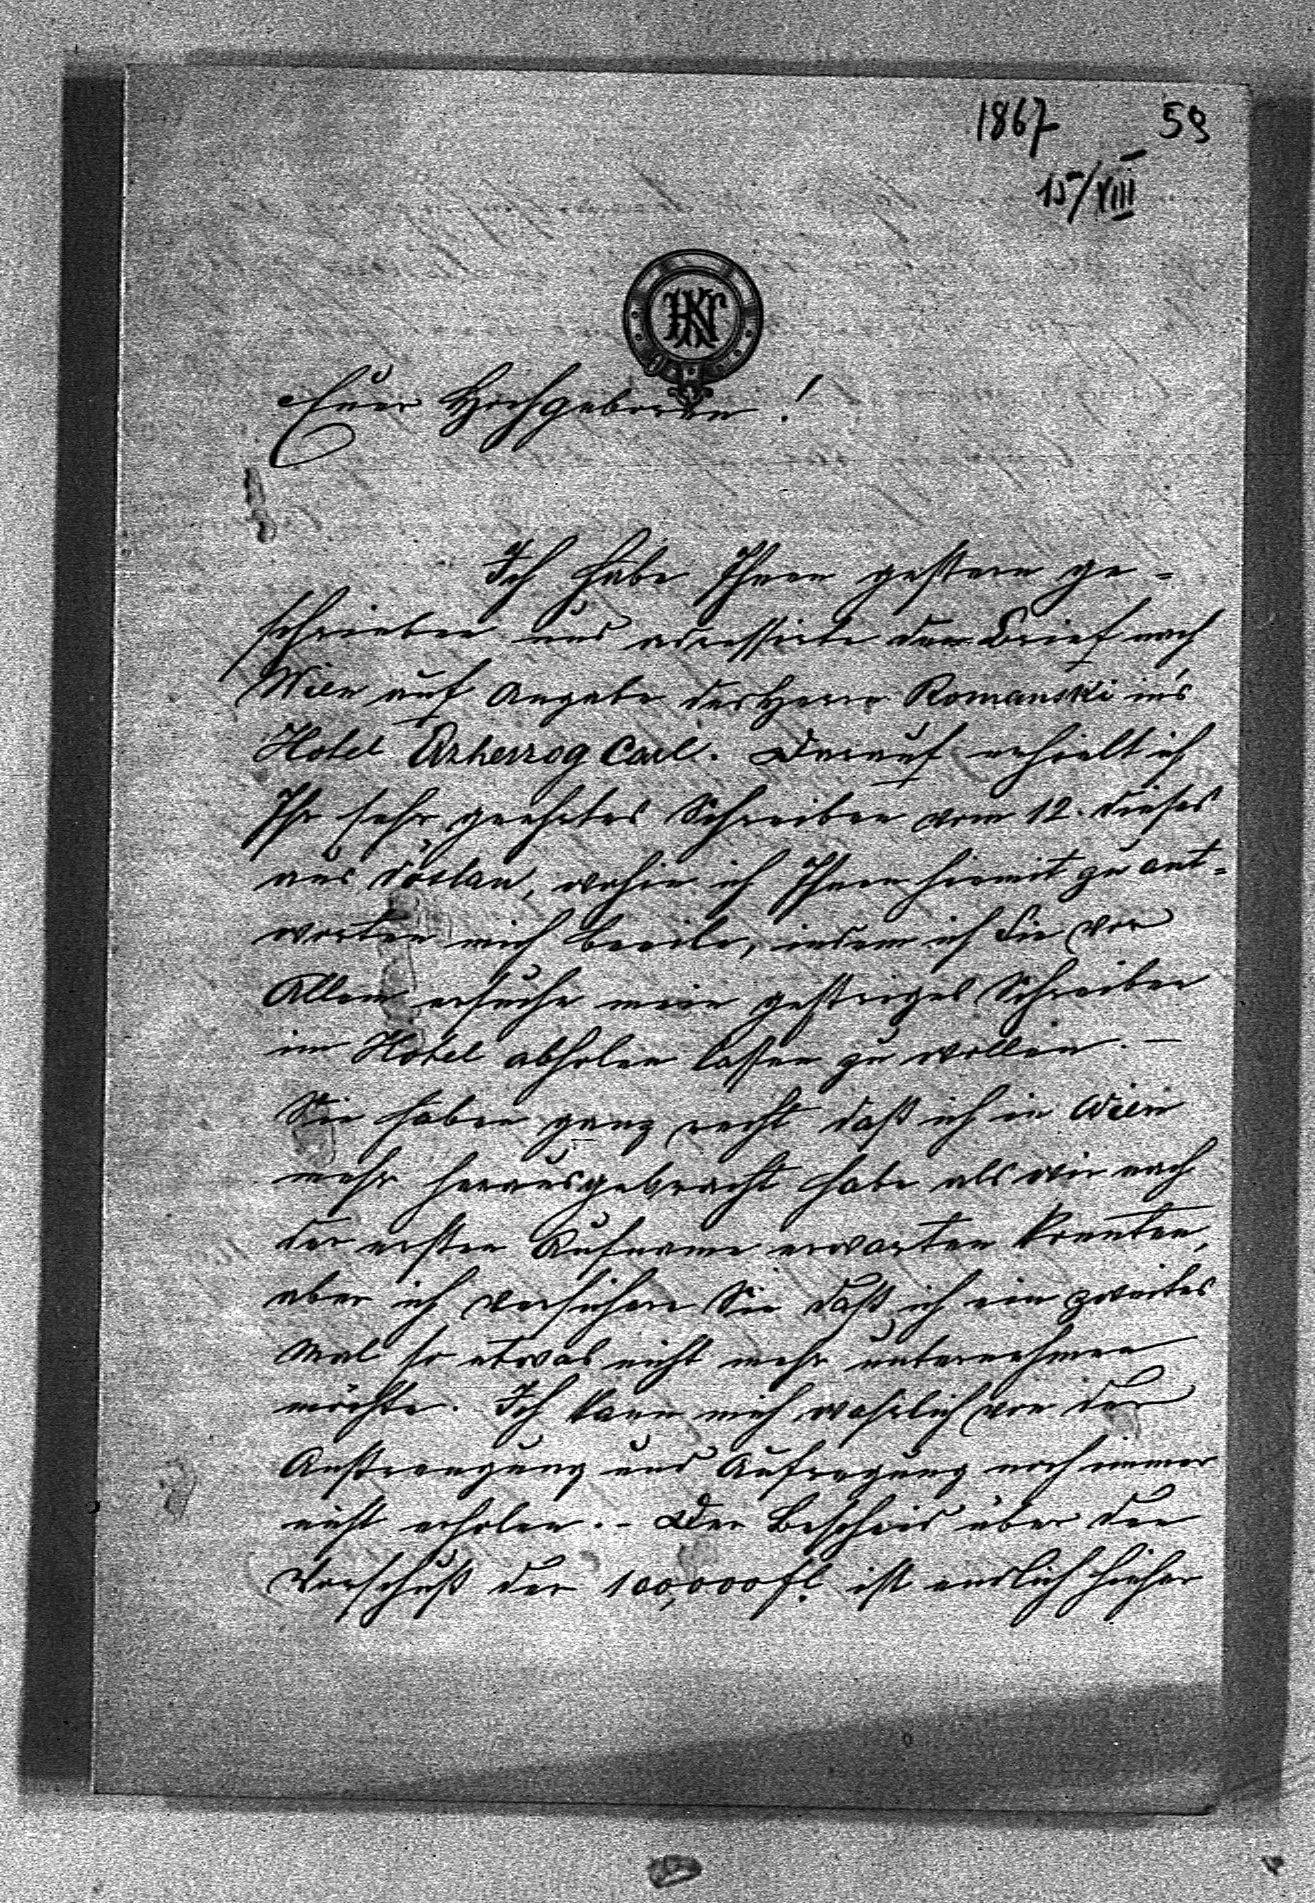 1867 59
15/VIII
HKN
Euer Hochgeboren!
Ich habe Ihnen gestern ge-
schrieben und adressirte den Brief nach
Wien auf Angabe des Herrn Romanski in's
Hotel Erzherzog Carl. Darauf erhielt ich
Ihr sehr geehrtes Schreiben vom 12. dieses
aus Vöslau, wohin ich Ihnen hiermit zu ant-
worten mich beeile, indem ich Sie vor
Allem ersuche mein gestriges Schreiben
im Hotel abholen lassen zu wollen. —
Sie haben ganz recht daß ich in Wien
mehr herausgebracht habe als wir nach
der ersten Aufname erwarten konnten,
aber ich versichere Sie daß ich ein zweites
Mal so etwas nicht mehr unternehmen
möchte. Ich kann mich wahrlich von der
Anstrengung und Aufregung noch immer
nicht erholen. – Der Bescheid über den
Vorschuß der 100,000 fl. ist endlich hieher